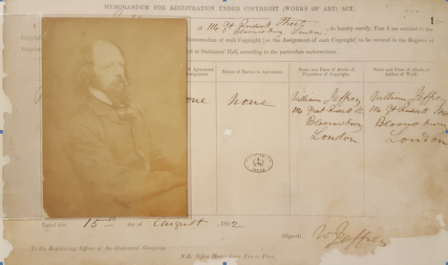 MEMORANDUM FOR REGISTRATION UNDER COPYRIGHT (WORKS OF ART) ACT.
1
of Street
Bloomsbury London, do hereby certify, That I am entitled to the
Memorandum of such Copyright (or the Assignment of such Copyright) to be entered in the Register of
at Stationers' Hall, according to the particulars underwritten.
of Agreement
Assignment.
Names of Parties to Agreement.
Name and Place of Abode of
Proprietor of Copyright.
Name and Place of Abode of
Author of Work.
None
William Jeffrey
Bloomsbury
London
William Jeffrey
114 Gt Russell
Bloomsbury
London
Dated this 15th day of August, 1862
(Signed) W Jeffrey
To the Registering Officer of the Stationers' Company.
N.B. Office Hours from Ten to Four.